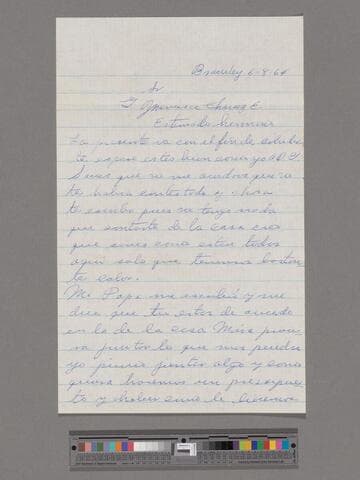 Brawley 6-8-64
Sr
Estimado hermano
La presente va con el fin de saludar
te espero estes bien como yo a D. G.
que ya no me acordava que ya
te habia contestado y ahora
te escribo pues no tengo nada
que contarte de la casa creo
que saves como estan todos
aqui solo que tenemos bastan
te calor.
Mi Papa me escribió y me
dice que tu estas de acuerdo
en lo de la casa Mira procu
ra juntar lo que mas puedas
yo pienso juntar algo y como
quiera haremos un presupues
to y haber como le hacemos